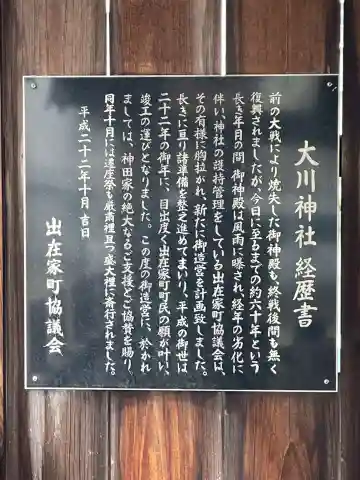 大川神社 経歴書
前の大戦により焼失した御神殿も終戦後間も無く
復興されましたが、今日に至るまでの約六十年という
長き年月の間、御神殿は風雨に曝され経年の劣化に
伴い、神社の護持管理をしている出在家町協議会は、
その有様に胸拉かれ、新たに御造営を計画致しました。
長きに亘り諸準備を整え進めてまいり、平成の御世は
二十二年の御年に、目出度く出在家町町民の願が叶い、
竣工の運びとなりました。この度の御造営に、於かれ
ましては、神田家の絶大なるご支援とご協賛を賜り、
同年十月には遷座祭も厳粛裡且つ盛大裡に斎行されました。
平成二十二年十月吉日
出在家町協議会